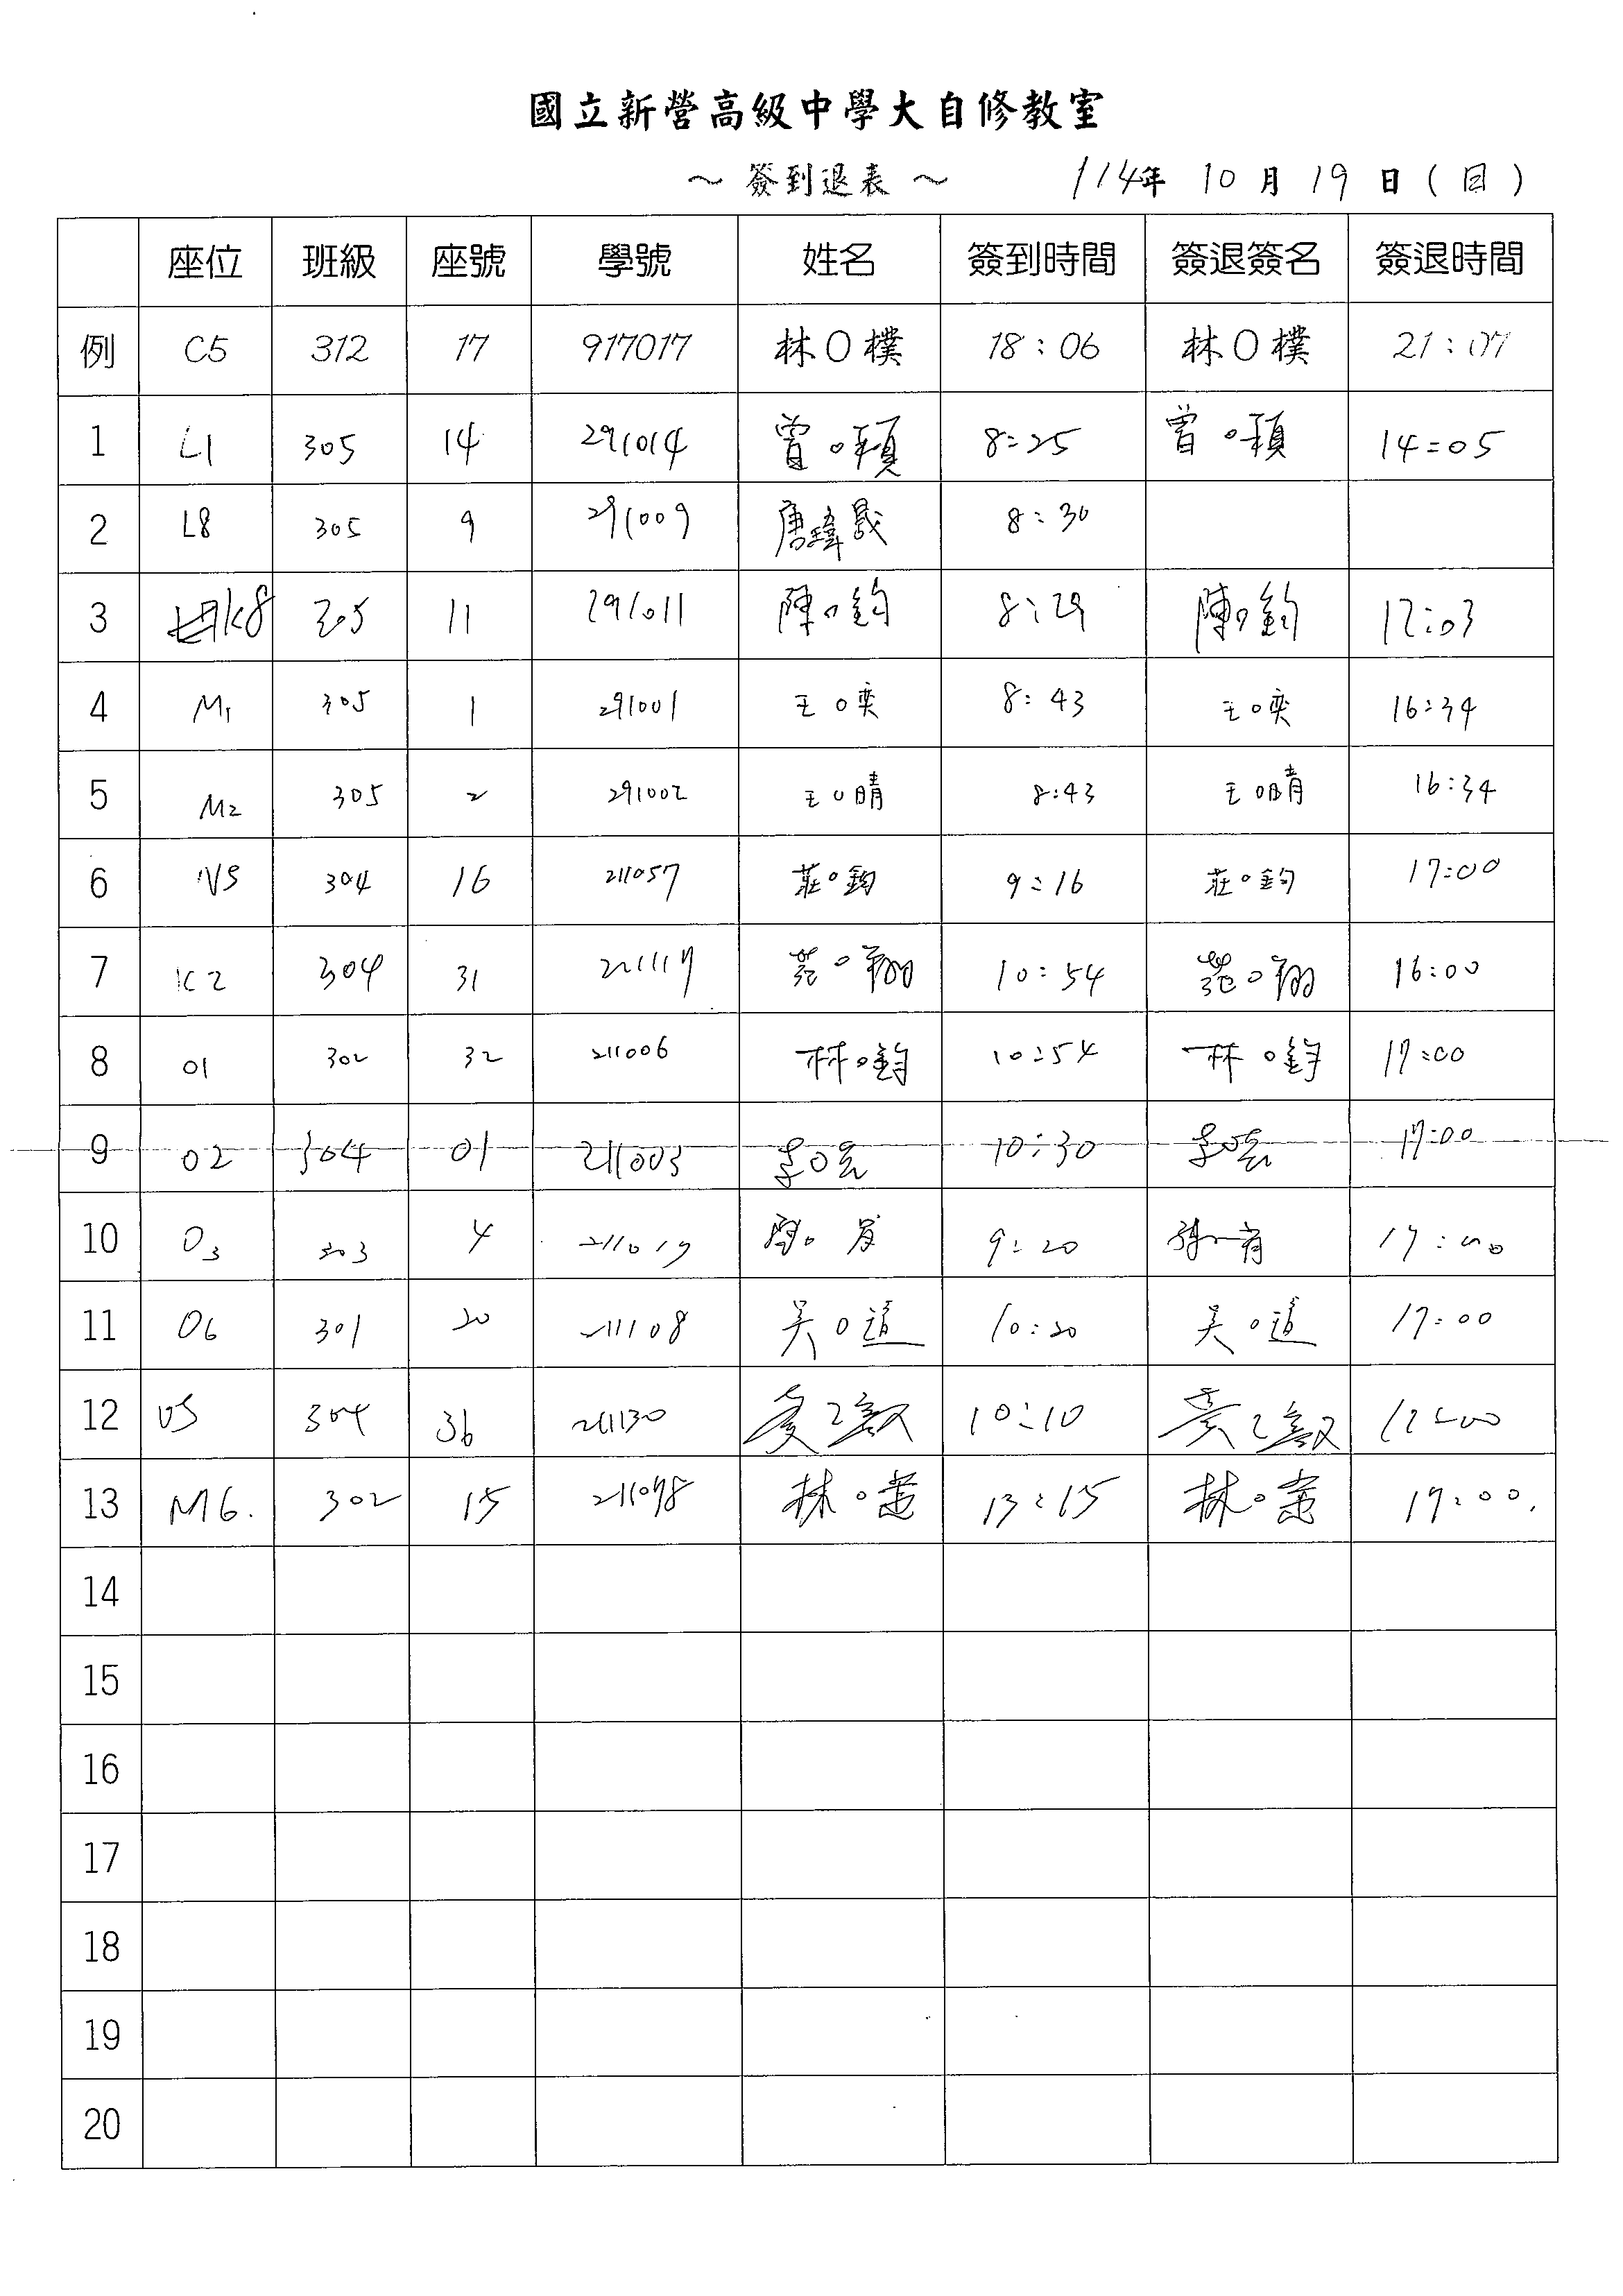 國立新營高級中學大自修教室
～ 簽到退表 ～ 114年 10 月 19 日 ( 日 )
座位 班級 座號 學號 姓名 簽到時間 簽退簽名 簽退時間
例 C5 312 17 917017 林O樸 18:06 林O樸 21:07
1 L1 305 14 291014 曾O穎 8:25 曾O穎 14:05
2 L8 305 9 291009 唐瑋晟 8:30
3 K8 305 11 291011 陳O鈞 8:29 陳O鈞 17:03
4 M1 305 1 291001 王O奕 8:43 王O奕 16:34
5 M2 305 2 291002 王O晴 8:43 王O晴 16:34
6 304 16 211057 莊O鈞 9:16 莊O鈞 17:00
7 K2 304 31 211117 范O翔 10:54 范O翔 16:00
8 O1 302 32 211006 林O鈞 10:54 林O鈞 17:00
9 O2 304 01 211003 李O宏 10:30 李O宏 17:00
10 O3 303 4 211019 9:20 17:00
11 O6 301 20 211108 吳O誼 10:20 吳O誼 17:00
12 304 36 211130 10:10
13 M6. 302 15 211098 林O萱 13:15 林O萱 17:00.
14
15
16
17
18
19
20